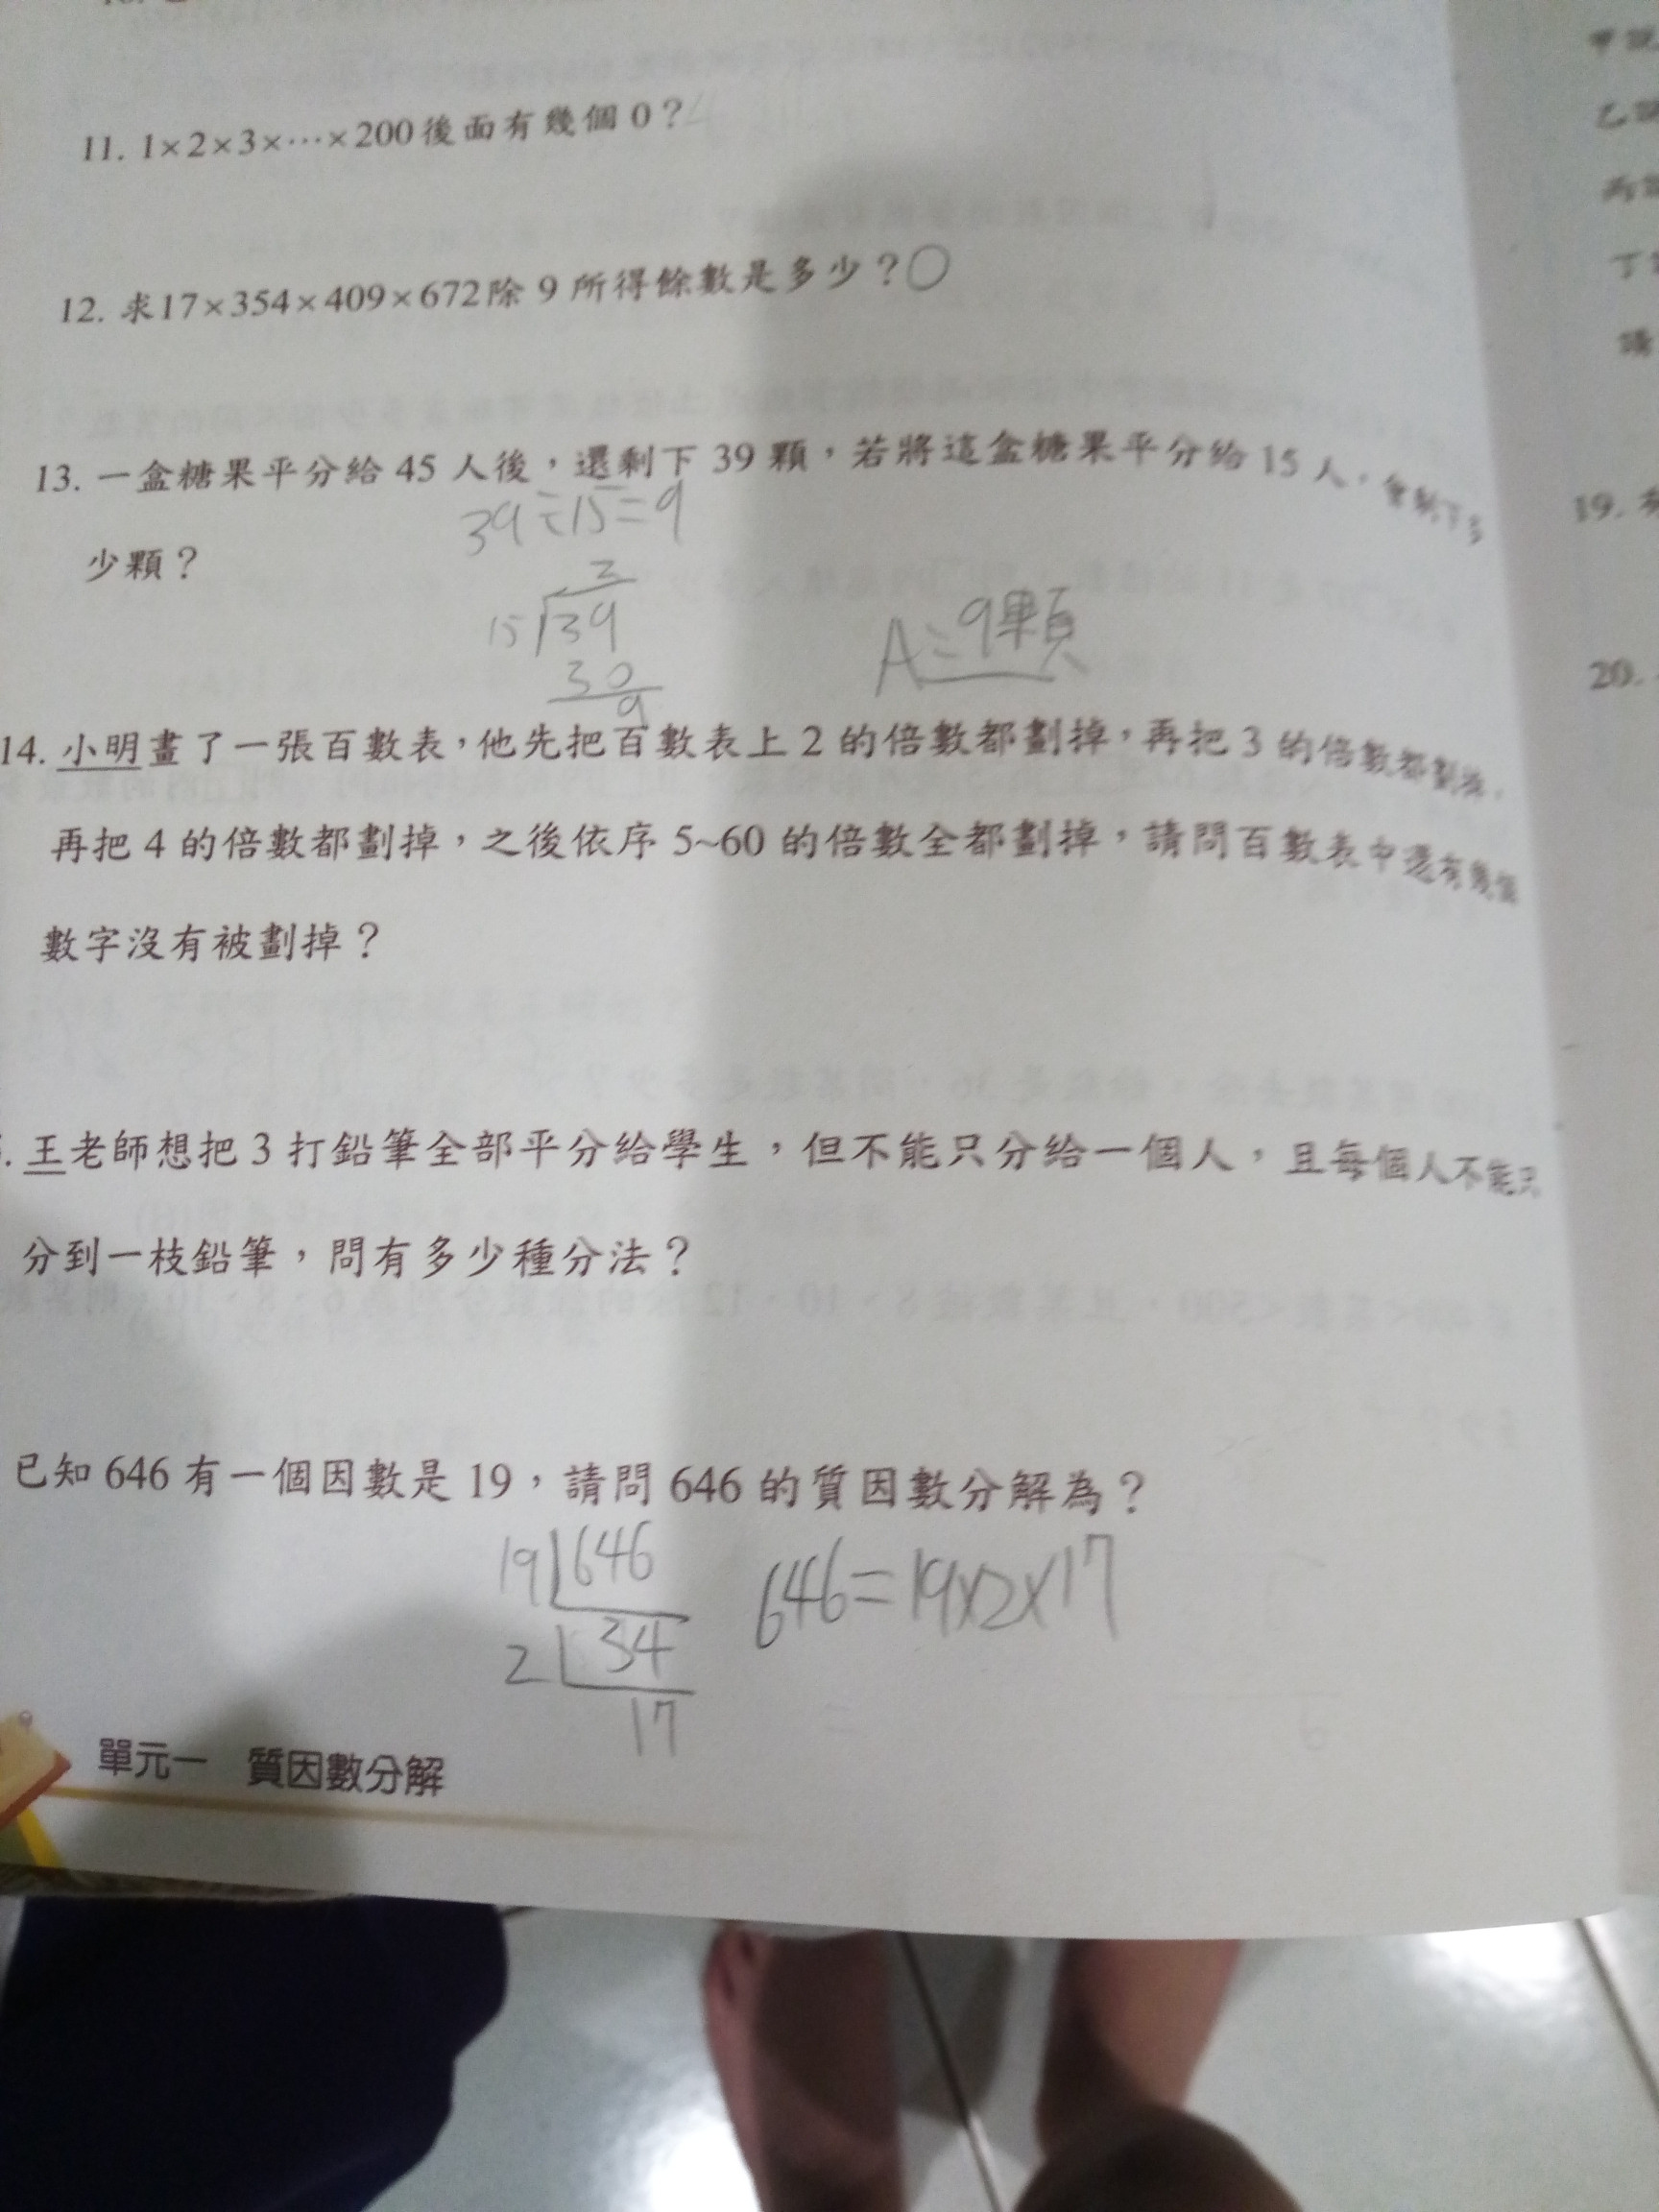 11. 1×2×3×⋯×200後面有幾個0？
12. 求17×354×409×672除9所得餘數是多少？○
13. 一盒糖果平分給45人後，還剩下39顆，若將這盒糖果平分給15人，會剩下多
39÷15=9
少顆？
2
15 39
30
9
A:9顆
14. 小明畫了一張百數表，他先把百數表上2的倍數都劃掉，再把3的倍數都劃掉，
再把4的倍數都劃掉，之後依序5~60的倍數全都劃掉，請問百數表中還有幾個
數字沒有被劃掉？
. 王老師想把3打鉛筆全部平分給學生，但不能只分給一個人，且每個人不能只
分到一枝鉛筆，問有多少種分法？
已知646有一個因數是19，請問646的質因數分解為？
19 646
2 34
17
646=19×2×17
單元一 質因數分解
甲說
乙說
19.
20.